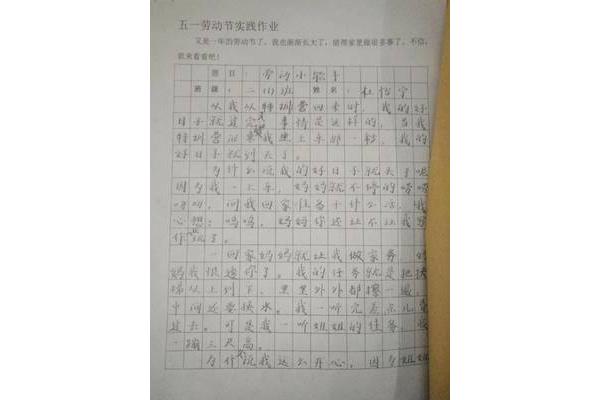 五一劳动节实践作业
又是一年的劳动节了，我也渐渐长大了，能帮家里做很多事了，不信，
就来看看吧！
题目：劳动小能手
班级：二(1)班 姓名：杜
从我从特训营回来时，我的好
日子就过完 事情是这样的，当我
特训营 我 上车那一刻，我的
好日子就到头了。
为什么说我的好日子就头了呢
因为我一上车，妈妈就不停的唠唠
叨叨，问我回家准备干什么活，我
心想：呜呜，妈妈你还让不让我
你 玩了。
一回家妈妈就让我做家务，
妈我恨透你了。我的任务就是把
梯从上到下，里里外外都擦一遍，
中间还要换水。我一听完差点儿
过去。可是我一听姐姐的任务，
一蹦三尺高。
为什 说我这么开心，因为姐姐